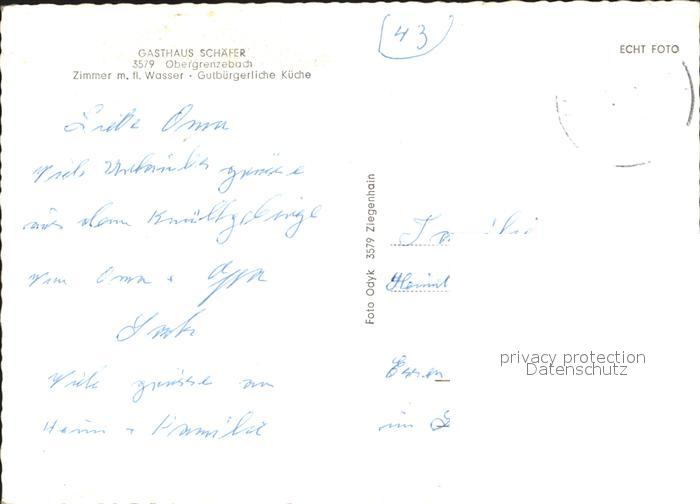 43
GASTHAUS SCHÄFER
3579 Obergrenzebach
Zimmer m. fl. Wasser · Gutbürgerliche Küche
ECHT FOTO
Oma
Viele Urlaubs grüsse
aus dem Knüllgebirge
Von Oma + Opa
Viele grüsse an
+ Familie
Foto Odyk 3579 Ziegenhain
Essen
privacy protection
Datenschutz